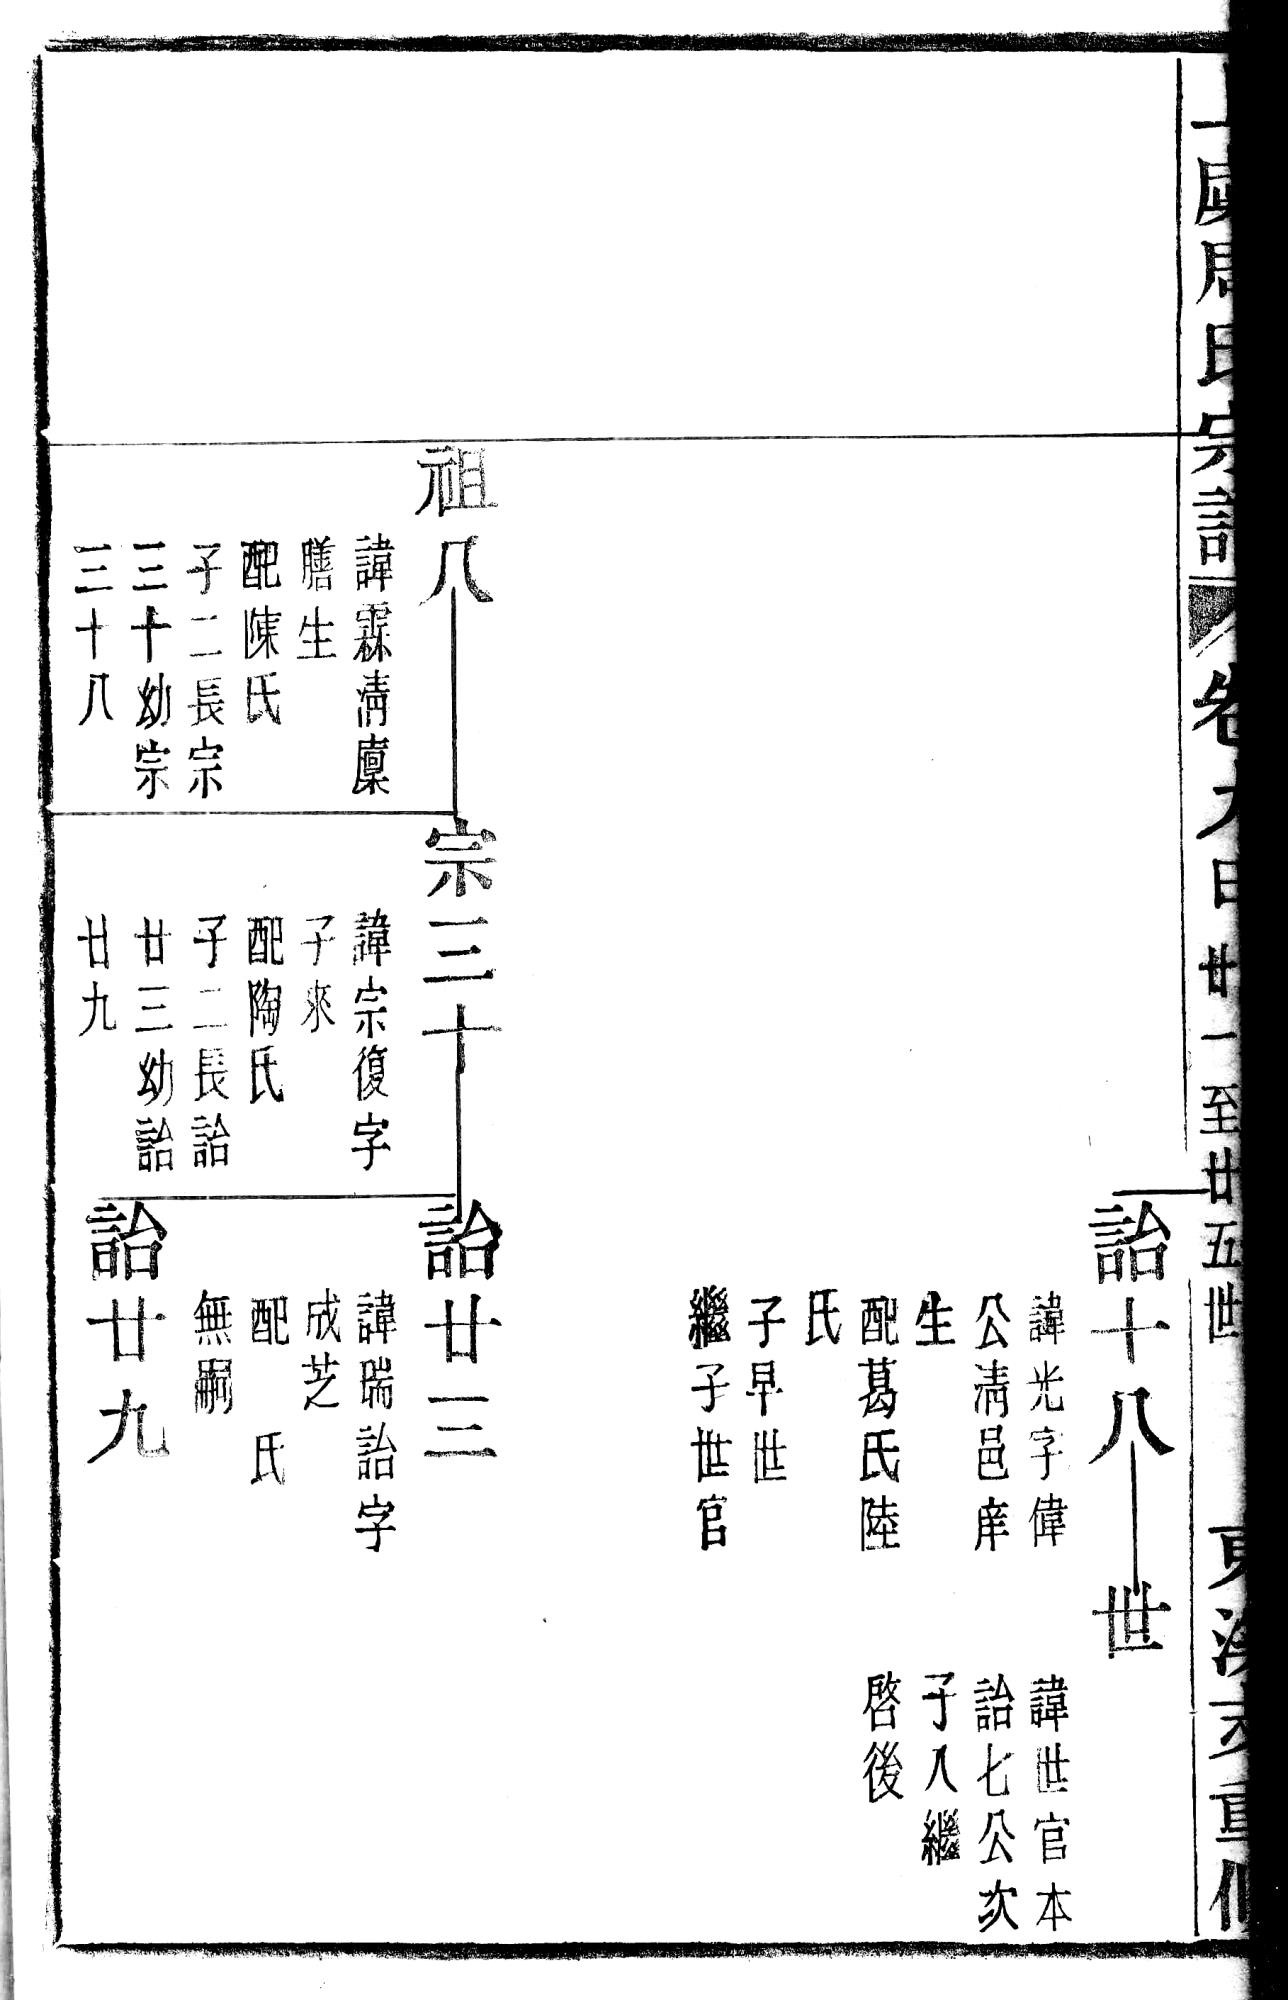 周氏宗譜
卷九
廿一至廿五世
重修
詒十八
諱光字偉
公清邑庠
生
配葛氏陸
氏
子早世
繼子世官
世
諱世官本
詒七公次
子入繼
啓後
祖八
諱霖清廩
膳生
配陳氏
子二長宗
三十幼宗
三十八
宗三十
諱宗復字
子來
配陶氏
子二長詒
廿三幼詒
廿九
詒廿三
諱瑞詒字
成芝
配　氏
無嗣
詒廿九